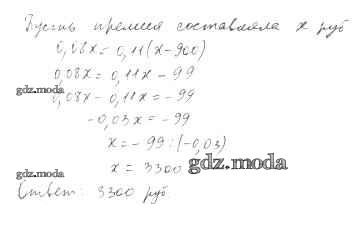 Пусть премия составляла x руб
0,08x = 0,11(x-900)
0,08x = 0,11x - 99
gdz.moda
0,08x - 0,11x = -99
-0,03x = -99
x = -99 : (-0,03)
x = 3300
gdz.moda
gdz.moda
Ответ: 3300 руб.